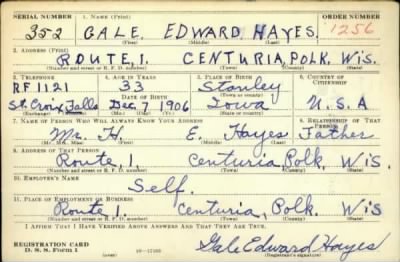 SERIAL NUMBER 1. NAME (Print) ORDER NUMBER
352 GALE. EDWARD HAYES. 1256
(First) (Middle) (Last)
2. ADDRESS (Print)
ROUTE, 1. CENTURIA, POLK, Wis.
(Number and street or R. F. D. number) (Town) (County) (State)
3. TELEPHONE 4. AGE IN YEARS 5. PLACE OF BIRTH 6. COUNTRY OF CITIZENSHIP
RF1121 33 Stanley
DATE OF BIRTH (Town or county)
St. Croix Falls Dec. 7, 1906 Iowa U.S.A
(Exchange) (Number) (Mo.) (Day) (Yr.) (State or country)
7. NAME OF PERSON WHO WILL ALWAYS KNOW YOUR ADDRESS 8. RELATIONSHIP OF THAT PERSON
Mr. H. E. Hayes Father
(Mr., Mrs., Miss) (First) (Middle) (Last)
9. ADDRESS OF THAT PERSON
Route, 1. Centuria, Polk. Wis.
(Number and street or R. F. D. number) (Town) (County) (State)
10. EMPLOYER'S NAME
Self.
11. PLACE OF EMPLOYMENT OR BUSINESS
Route 1. Centuria, Polk. Wis
(Number and street or R. F. D. number) (Town) (County) (State)
I AFFIRM THAT I HAVE VERIFIED ABOVE ANSWERS AND THAT THEY ARE TRUE.
REGISTRATION CARD
D. S. S. Form 1 Gale Edward Hayes
(Registrant's signature)